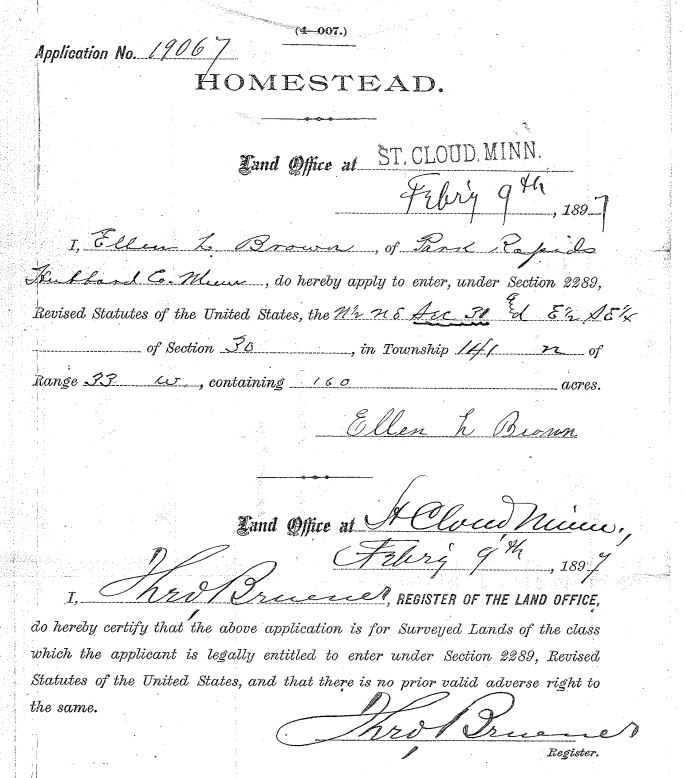 (4—007.)
Application No. 19067
HOMESTEAD.
Land Office at ST. CLOUD, MINN.
Feb'y 9th, 1897
I, Ellen L. Brown, of Park Rapids
Hubbard Co. Minn, do hereby apply to enter, under Section 2289,
Revised Statutes of the United States, the N½ NE Sec 30 & E½ SE¼
of Section 30, in Township 141 n of
Range 33 W., containing 160 acres.
Ellen L Brown
Land Office at St Cloud, Minn.,
Feb'y 9th, 1897
I, Theo, Bruener, REGISTER OF THE LAND OFFICE,
do hereby certify that the above application is for Surveyed Lands of the class
which the applicant is legally entitled to enter under Section 2289, Revised
Statutes of the United States, and that there is no prior valid adverse right to
the same.
Theo, Bruener
Register.